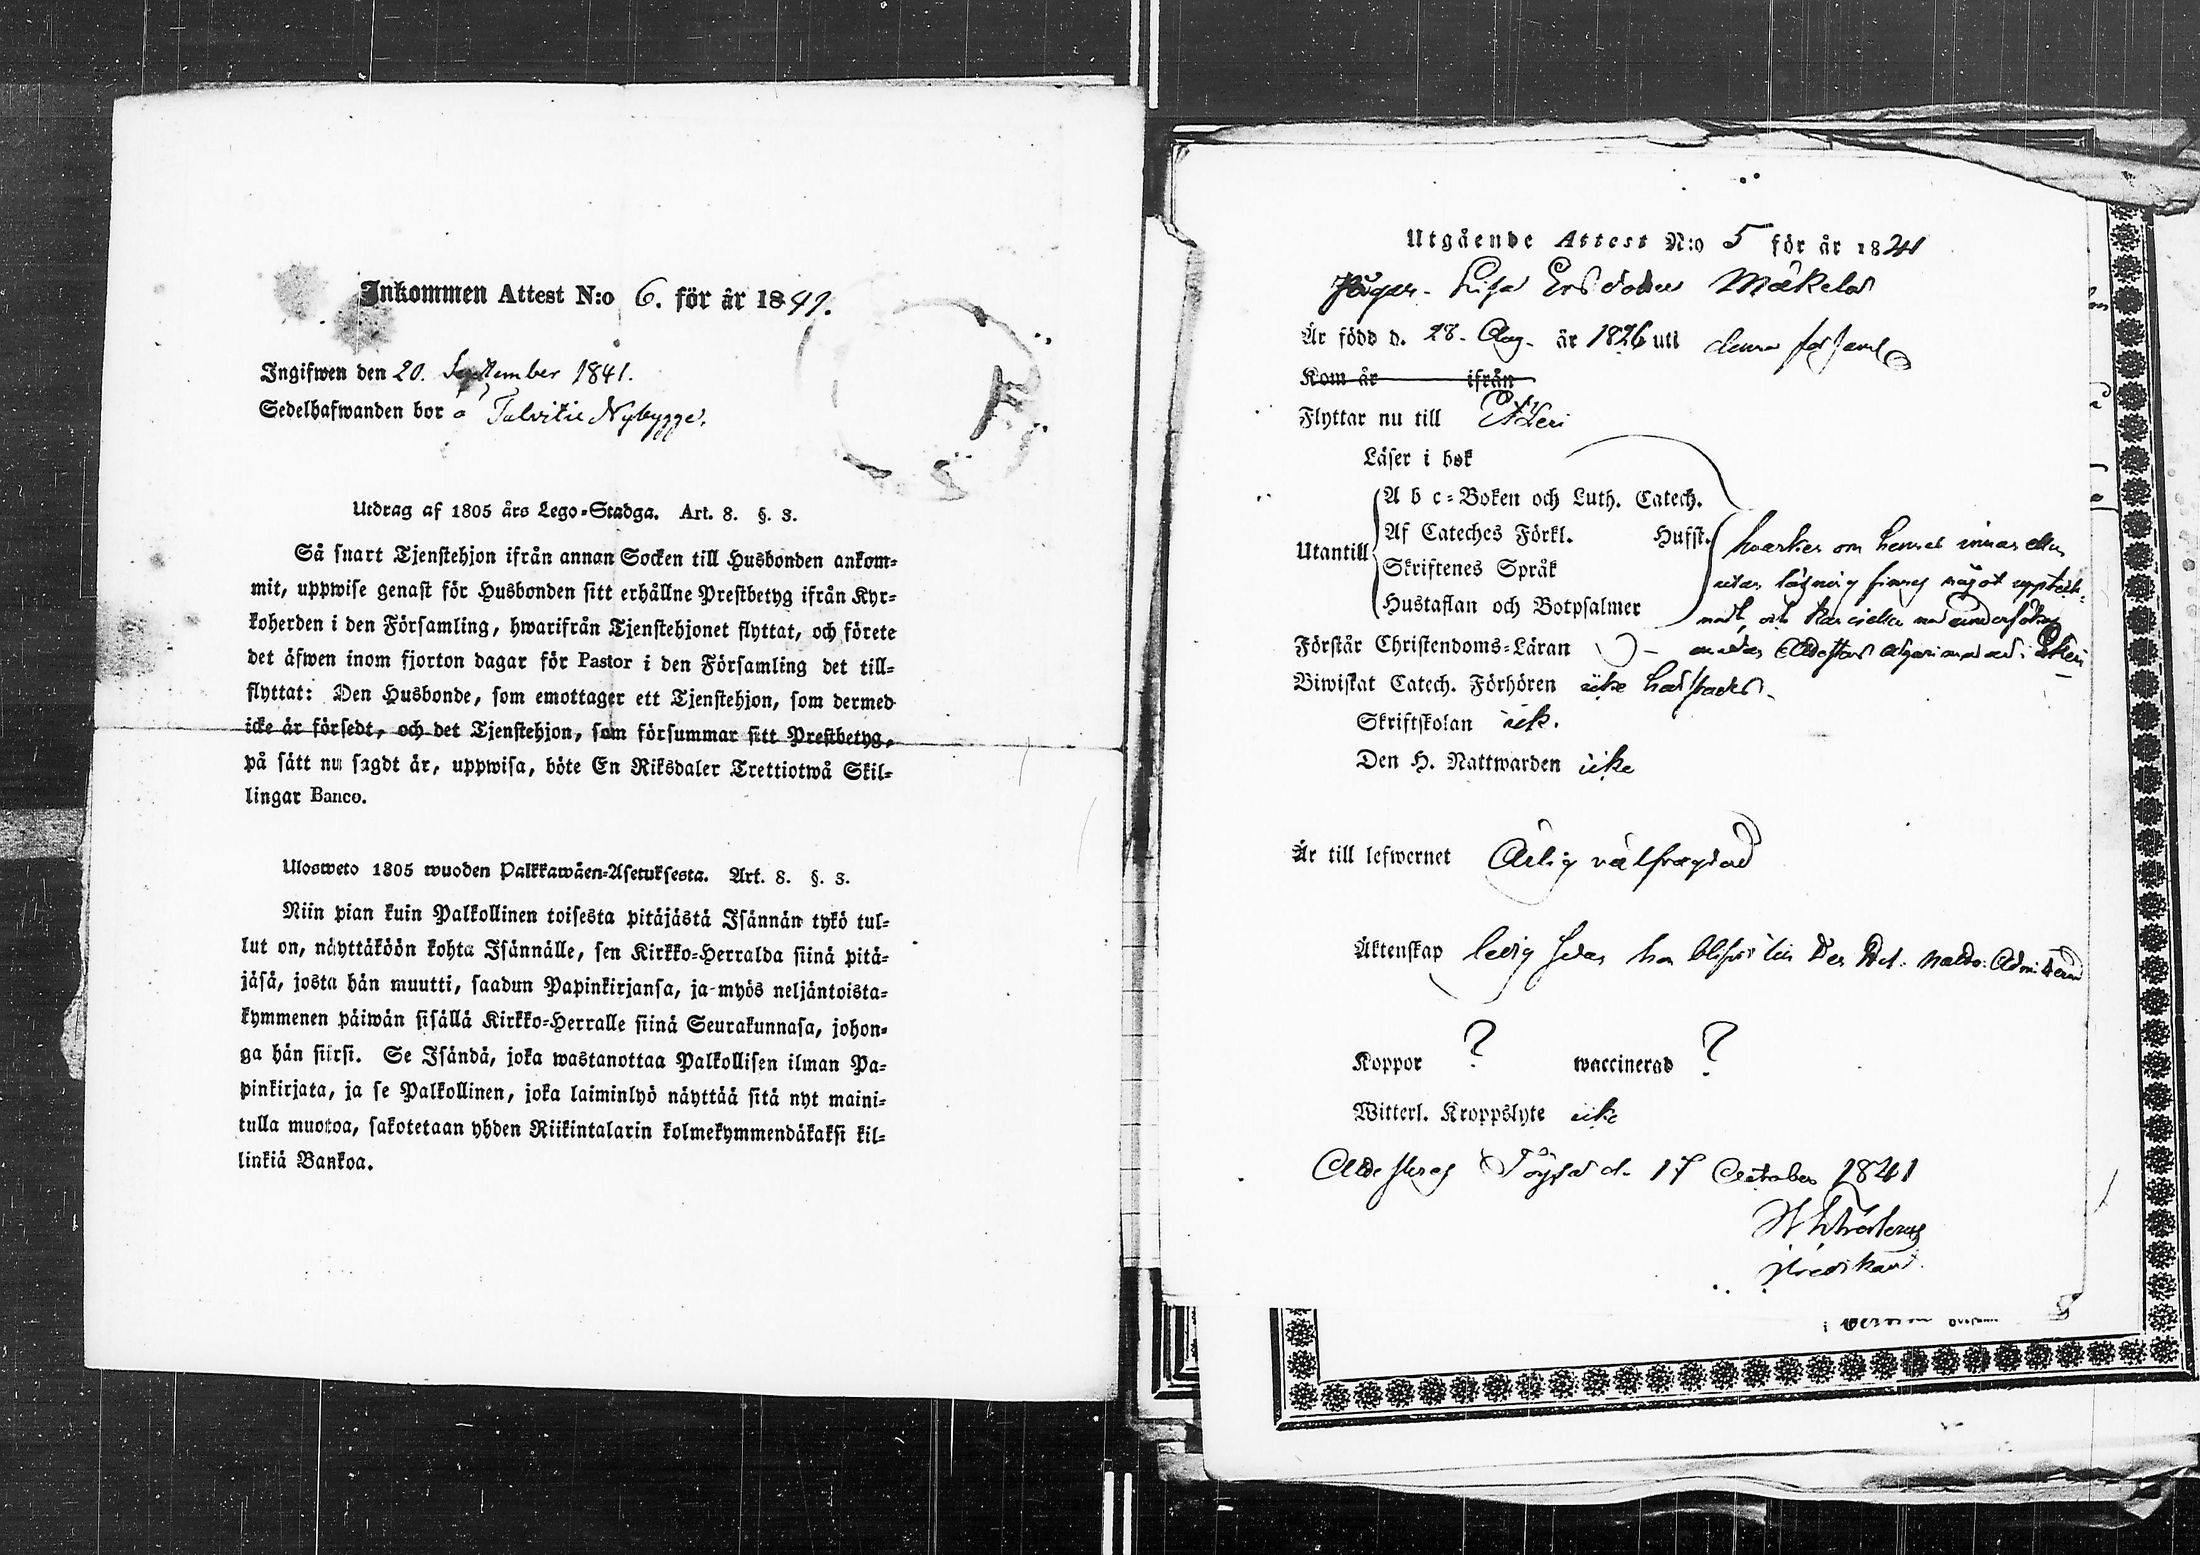 Inkommen Attest N:o 6. för år 1841.
Ingifwen den 20. September 1841.
Sedelhafwanden bor å Talvitie Nybygge.
Utdrag af 1805 års Lego-Stadga. Art. 8. §. 3.
Så snart Tjenstehjon ifrån annan Socken till Husbonden ankom-
mit, uppwise genast för Husbonden sitt erhållne Prestbetyg ifrån Kyr-
koherden i den Församling, hwarifrån Tjenstehjonet flyttat, och förete
det äfwen inom fjorton dagar för Pastor i den Församling det till-
flyttat: Den Husbonde, som emottager ett Tjenstehjon, som dermed
icke är försedt, och det Tjenstehjon, som försummar sitt Prestbetyg,
på sätt nu sagdt är, uppwisa, böte En Riksdaler Trettiotwå Skil-
lingar Banco.
Ulosweto 1805 wuoden Palkkawäen-Asetuksesta. Art. 8. §. 3.
Niin pian kuin Palkollinen toisesta pitäjästä Isännän tykö tul-
lut on, näyttäköön kohta Isännälle, sen Kirkko-Herralda siinä pitä-
jäsä, josta hän muutti, saadun Papinkirjansa, ja myös neljäntoista-
kymmenen päiwän sisällä Kirkko-Herralle siinä Seurakunnasa, johon-
ga hän siirsi. Se Isändä, joka wastanottaa Palkollisen ilman Pa-
pinkirjata, ja se Palkollinen, joka laiminlyö näyttää sitä nyt maini-
tulla muotoa, sakotetaan yhden Riikintalarin kolmekymmendäkaksi kil-
linkiä Bankoa.
Utgående Attest N:o 5 för år 1841
Pigan Lisa Ersdotter Mäkelä
Är född d. 28. Aug. år 1826 uti denna församl
Kom år ifrån
Flyttar nu till
Läser i bok
A b c-Boken och Luth. Catech.
Af Cateches Förkl. Hufst.
Utantill
Skriftenes Språk
Hustaflan och Botpsalmer
hvarken om hennes innan eller
utan läsning finnes något upptek-
nadt, och
Förstår Christendoms-Läran
Biwistat Catech. Förhören icke
Skriftskolan ick.
Den H. Nattwarden icke
Är till lefwernet Ärlig välfrägdad
Äktenskap ledig
Koppor ? waccinerad ?
Witterl. Kroppslyte icke
Töysä d. 17 October 1841
Predikant